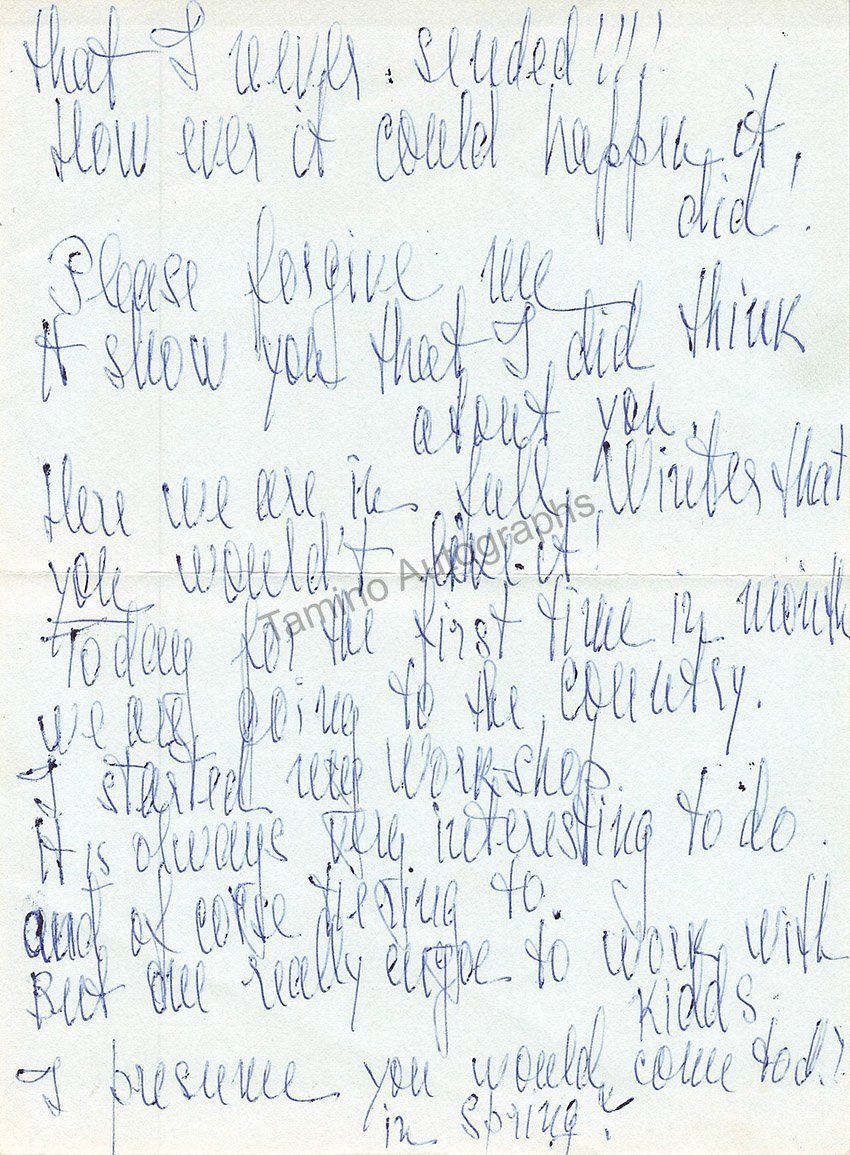 that I never sended!!!!
How ever it could happen, it
did!
Please forgive me
it show you that I did think
about you.
Here we are in full Winter that
you wouldn't like it!
Tamino Autographs
Today for the first time in month
we are going to the country.
I started my Work-shop
it is always very interesting to do.
and of corse tiering to.
But one really enjoe to work with
Kidds.
I presume you would come to
in Spring?